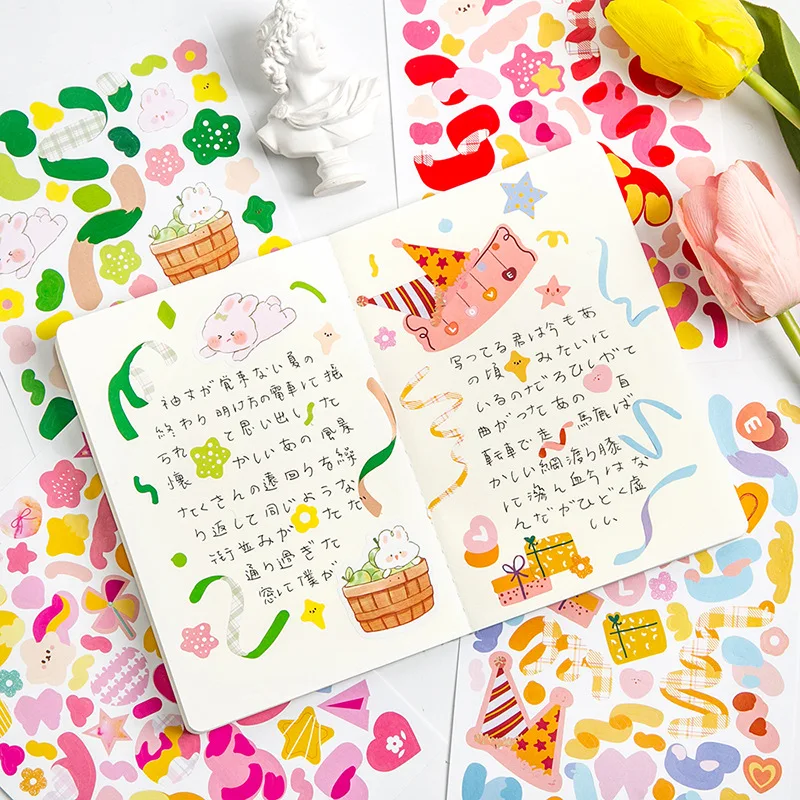 袖丈が覚束ない夏の
終わり 明け方の電車に揺
られて思い出した
懐かしいあの風景
たくさんの遠回りを繰
り返して同じような
街並みがただ
通り過ぎた
窓に僕が
写ってる君は今もあ
の頃みたいに
いるのだろひしがて
曲がったあの自
転車で走馬鹿ば
かしい綱渡り膝
に滲ん血今はな
んだがひどく虚
しい
E
E
L